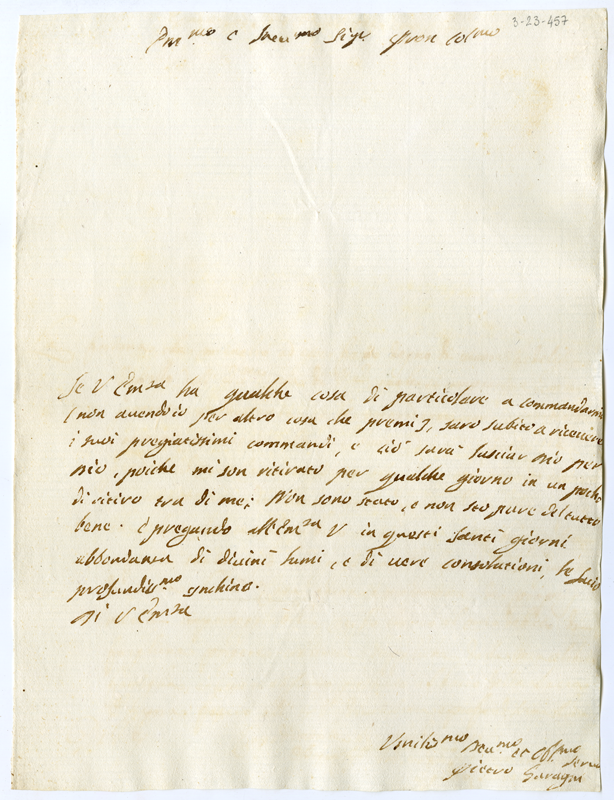 3-23-457
Em.mo e Rev.mo Sig.r Pron Col.mo
Se V Emza ha qualche cosa di particolare a commandarmi
(non avendo io per altro cosa che premi), sarò subito a ricevere
i suoi pregiatissimi commandi, e ciò sarà lasciar Dio per
Dio, poiche mi son ritirato per qualche giorno in un poche
di ritiro tra di me; Non sono stato, e non sto pure del tutto
bene. E pregando all'Emza V in questi santi giorni
abbondanza di divini lumi, e di vere consolationi, le faccio
profondiss.mo inchino.
Di V Emza
Umilis.mo Dev.mo et Obl.mo Serv
Pietro